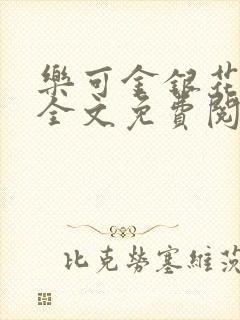 樂可金銀花
全文免費閱
比克勞塞維茨